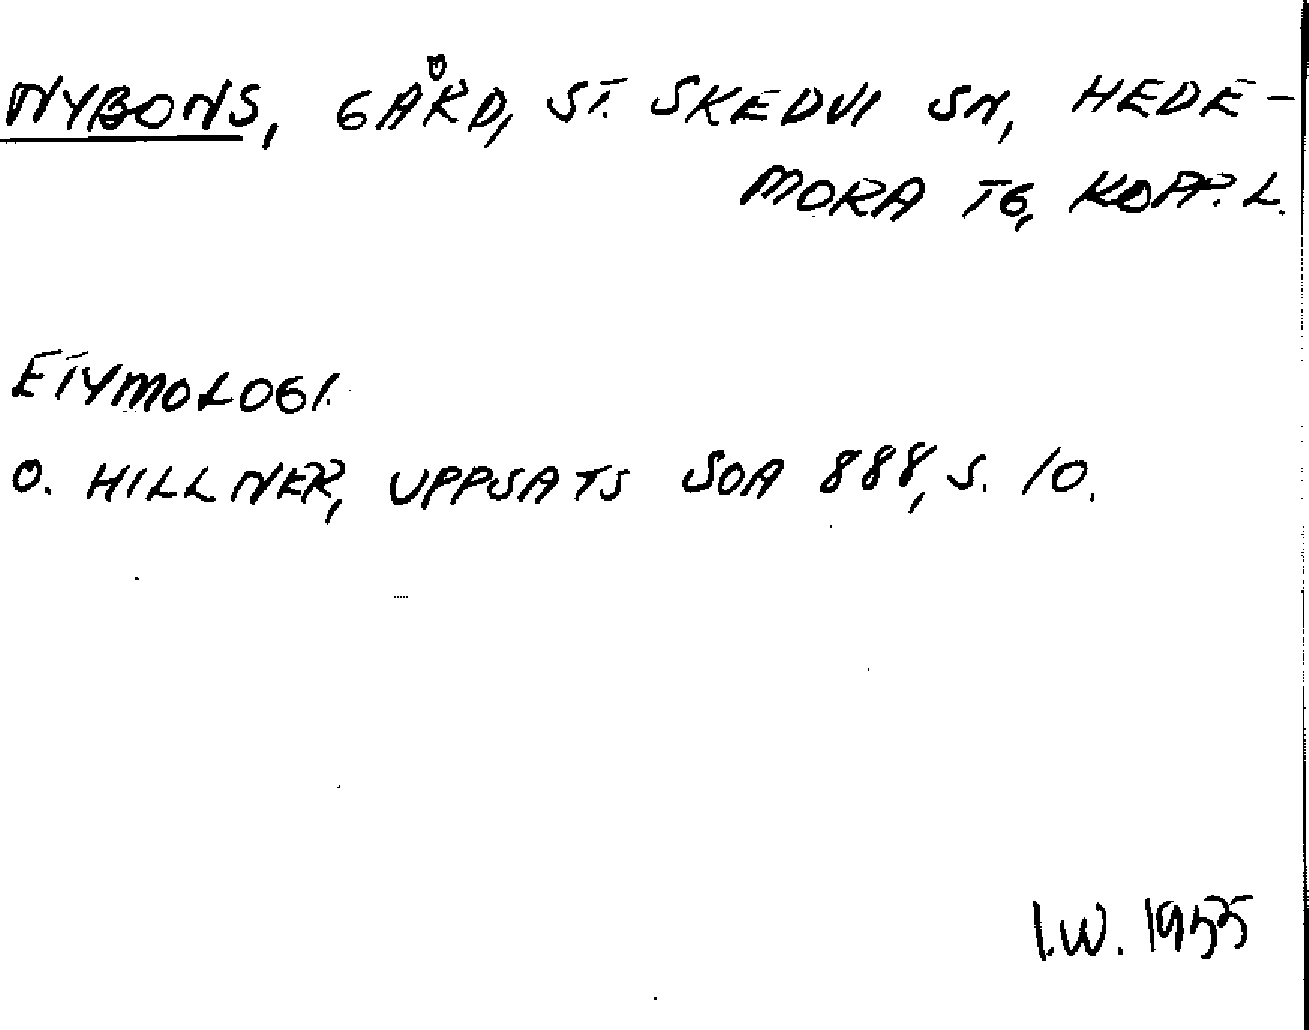 NYBONS, GÅRD, ST. SKEDVI SN, HEDE-
MORA TG, KOPP. L.
ETYMOLOGI.
O. HILLNER, UPPSATS SOA 888, S. 10.
I.W. 1955